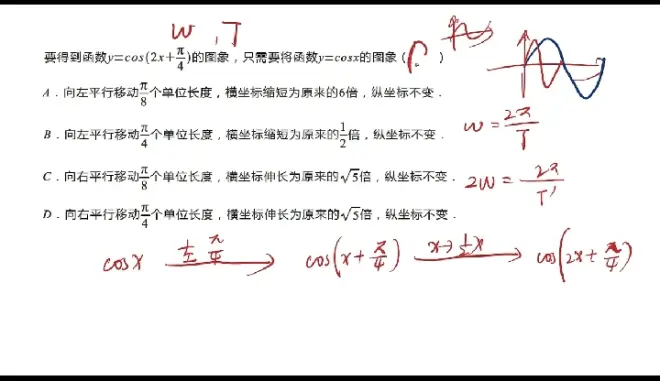 w , T
要得到函数y=cos(2x+π/4)的图象，只需要将函数y=cosx的图象（ ）
A．向左平行移动π/8个单位长度，横坐标缩短为原来的6倍，纵坐标不变．
B．向左平行移动π/4个单位长度，横坐标缩短为原来的1/2倍，纵坐标不变．
w = 2π/T
C．向右平行移动π/8个单位长度，横坐标伸长为原来的√5倍，纵坐标不变．
2w = 2π/T'
D．向右平行移动π/4个单位长度，横坐标伸长为原来的√5倍，纵坐标不变．
cosx 左 π/4 → cos(x+π/4) x→1/2x → cos(2x+π/4)